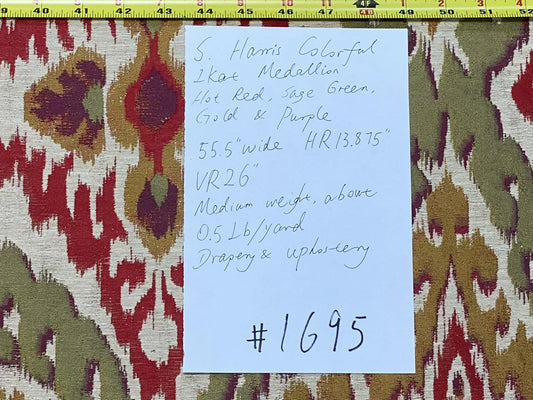 S. Harris Colorful
Ikat Medallion
Hot Red, Sage Green,
Gold & Purple
55.5" wide HR 13.875"
VR 26"
Medium weight, about
0.5 Lb/yard
Drapery & uphostery
#1695